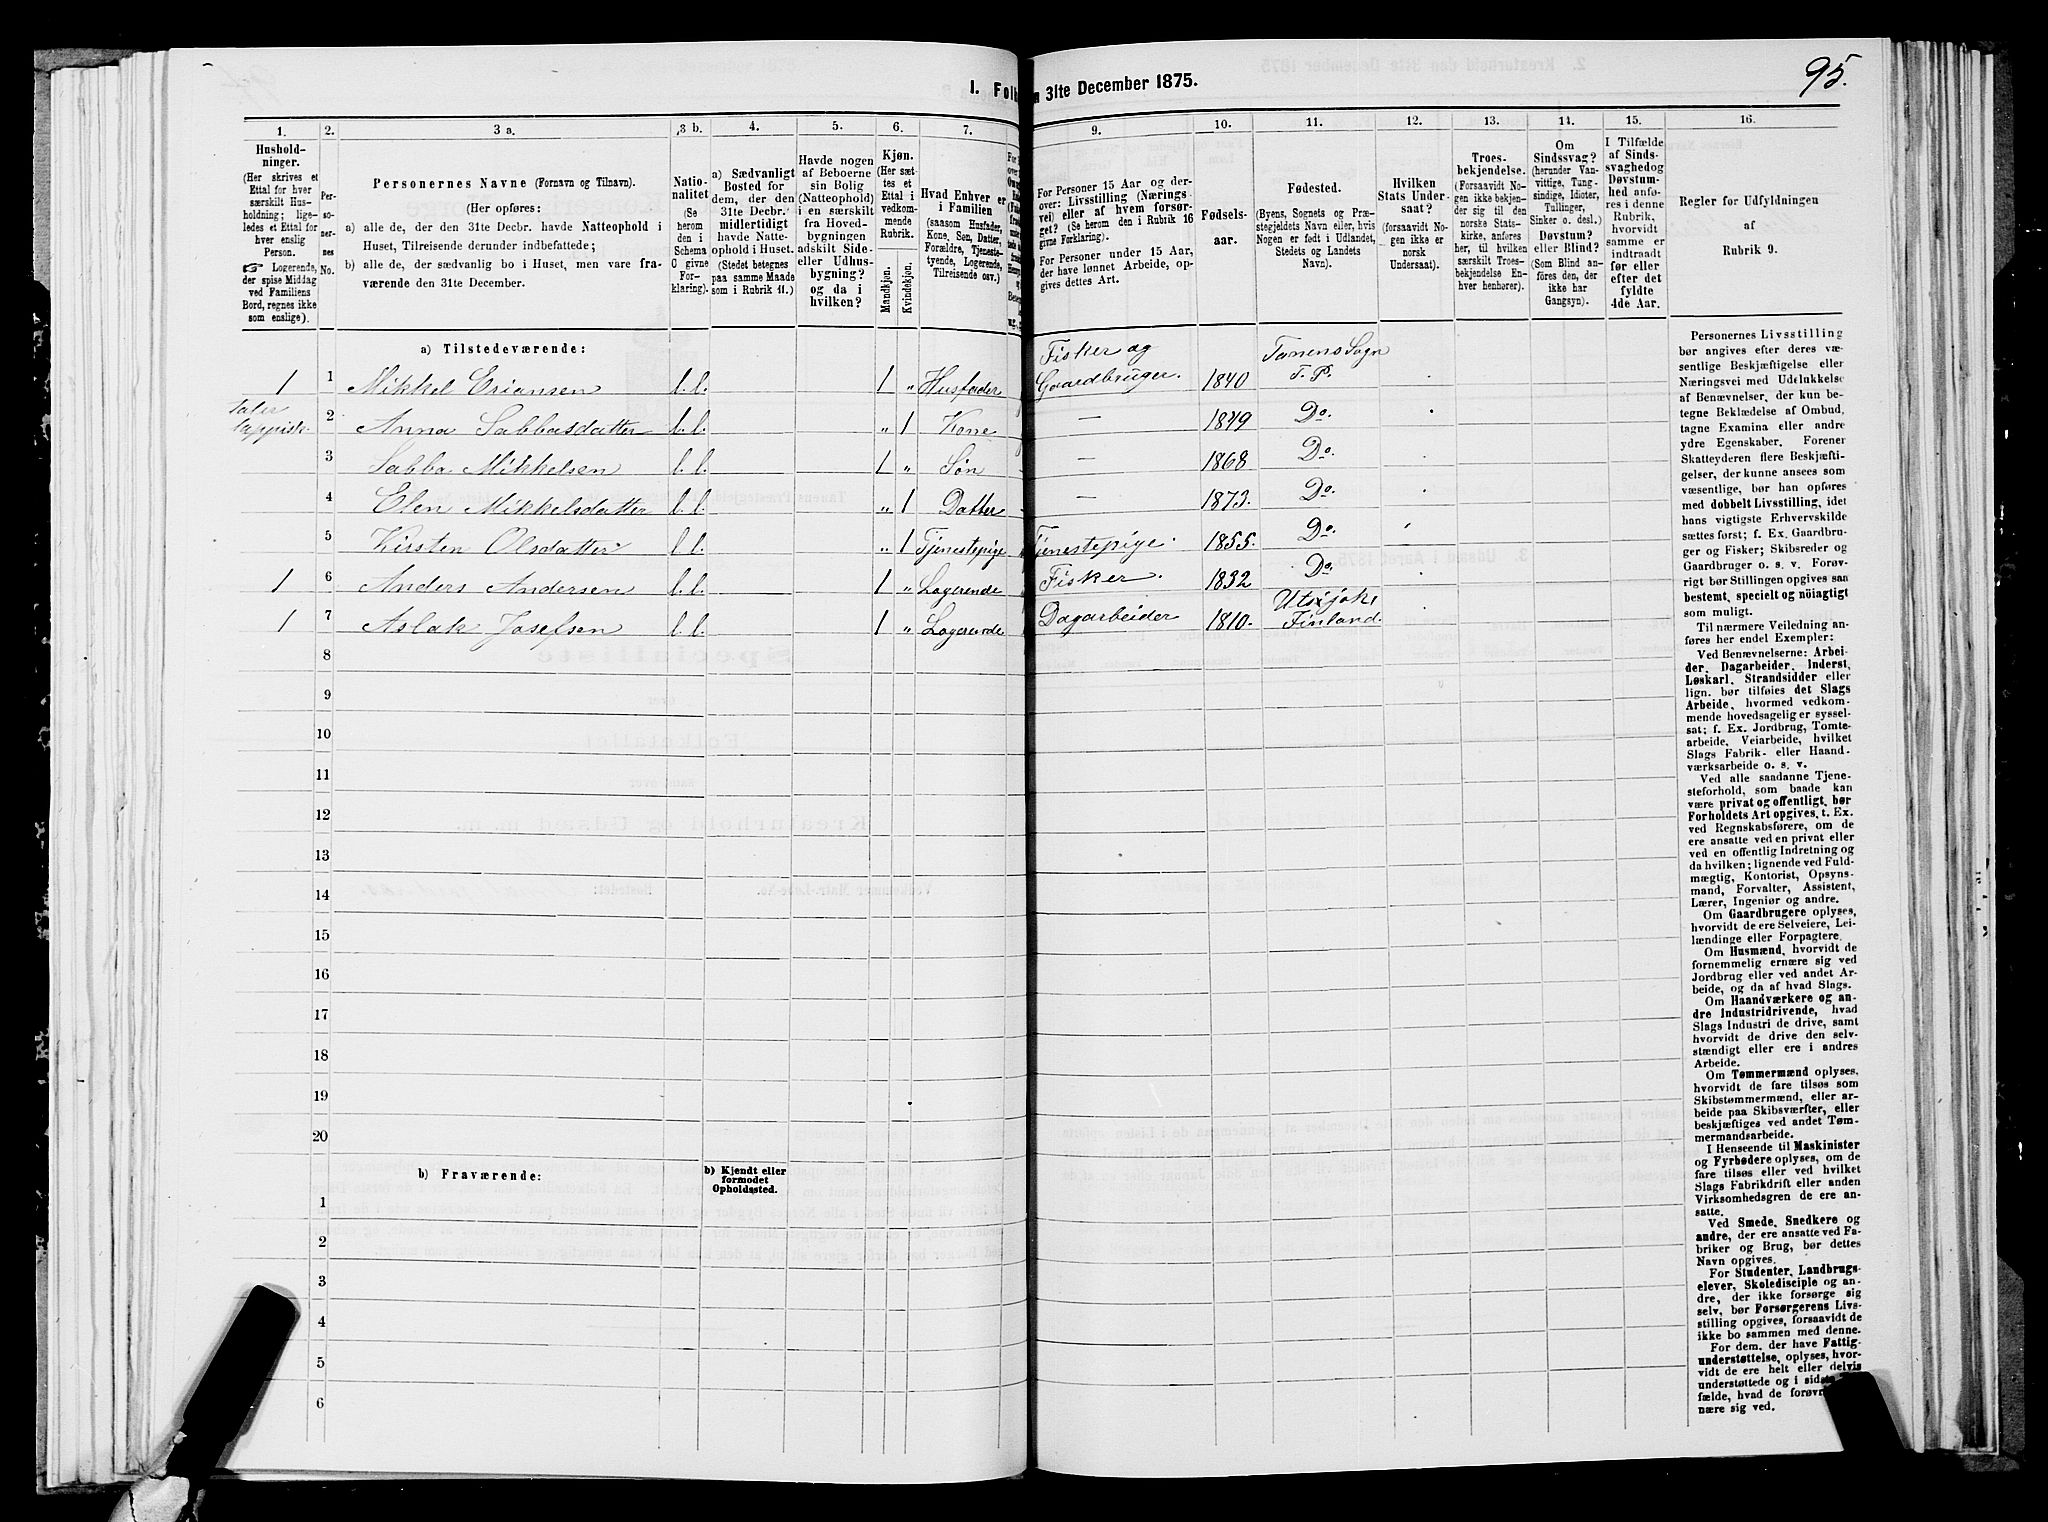 95.
1. Folk
n 31te December 1875.
1. 2. 3 a. 3 b. 4. 5. 6. 7. 9. 10. 11. 12. 13. 14. 15. 16.
Hushold-
ninger.
(Her skrives et
Ettal for hver
særskilt Hus-
holdning; lige-
ledes et Ettal for
hver enslig
Person.
☞ Logerende,
der spise Middag
ved Familiens
Bord, regnes ikke
som enslige).
Per-
so-
ner-
nes
No.
Personernes Navne (Fornavn og Tilnavn).
(Her opføres:
a) alle de, der den 31te Decbr. havde Natteophold i
Huset, Tilreisende derunder indbefattede;
b) alle de, der sædvanlig bo i Huset, men vare fra-
værende den 31te December.
Natio-
nalitet
(Se
herom
den i
Schema
C givne
For-
klaring).
a) Sædvanligt
Bosted for
dem, der den
31te Decbr.
midlertidigt
havde Natte-
ophold i Huset.
(Stedet betegnes
paa samme Maade
som i Rubrik 11.)
Havde nogen
af Beboerne
sin Bolig
(Natteophold)
i en særskilt
fra Hoved-
bygningen
adskilt Side-
eller Udhus-
bygning?
og da i
hvilken?
Kjøn.
(Her sæt-
tes et
Ettal i
vedkom-
mende
Rubrik.
Mandkjøn.
Kvindekjøn.
Hvad Enhver er
i Familien
(saasom Husfader,
Kone, Søn, Datter,
Forældre, Tjeneste-
tyende, Logerende,
Tilreisende osv.)
For Personer 15 Aar og der-
over: Livsstilling (Nærings-
vei) eller af hvem forsør-
get? (Se herom den i Rubrik 16
givne Forklaring).
For Personer under 15 Aar,
der have lønnet Arbeide, op-
gives dettes Art.
Fødsels-
aar.
Fødested.
(Byens, Sognets og Præ-
stegjeldets Navn eller, hvis
Nogen er født i Udlandet,
Stedets og Landets
Navn).
Hvilken
Stats Under-
saat?
(forsaavidt No-
gen ikke er
norsk
Undersaat).
Troes-
bekjendelse.
(Forsaavidt No-
gen ikke bekjen-
der sig til den
norske Stats-
kirke, anføres
her, til hvilken
særskilt Troes-
bekjendelse En-
hver henhører).
Om
Sindssvag?
(herunder Van-
vittige, Tung-
sindige, Idioter,
Tullinger,
Sinker o. desl.)
Døvstum?
eller Blind?
(Som Blind an-
føres den, der
ikke har
Gangsyn).
I Tilfælde
af Sinds-
svaghedog
Døvstum-
hed anfø-
res i denne
Rubrik,
hvorvidt
samme er
indtraadt
før eller
efter det
fyldte
4de Aar.
Regler for Udfyldningen
af
Rubrik 9.
a) Tilstedeværende:
1 1 Mikkel Eriansen l. l. 1 „ Husfader Fisker og Gaardbruger. 1840 Tanens Sogn T. P.
taler lappisk 2 Anna Sabbasdatter l. l. „ 1 Kone — 1849 Do.
3 Sabba Mikkelsen l. l. 1 „ Søn — 1868 Do.
4 Elen Mikkelsdatter l. l. „ 1 Datter — 1873. Do.
5 Kirsten Olsdatter l. l. „ 1 Tjenestepige Tjenestepige. 1855. Do.
1 6 Anders Andersen l. l. 1 „ Logerende Fisker. 1832 Do.
1 7 Aslak Joselsen l. l. 1 „ Logerende Dagarbeider 1810. Utsjoki Finland.
8
9
10
11
12
13
14
15
16
17
18
19
20
b) Fraværende:
b) Kjendt eller
formodet
Opholdssted.
1
2
3
4
5
6
Personernes Livsstilling
bør angives efter deres væ-
sentlige Beskjæftigelse eller
Næringsvei med Udelukkelse
af Benævnelser, der kun be-
tegne Beklædelse af Ombud,
tagne Examina eller andre
ydre Egenskaber. Forener
Skatteyderen flere Beskjæfti-
gelser, der kunne ansees som
væsentlige, bør han opføres
med dobbelt Livsstilling, idet
hans vigtigste Erhvervskilde
sættes først; f. Ex. Gaardbru-
ger og Fisker; Skibsreder og
Gaardbruger o. s. v. Forøv-
rigt bør Stillingen opgives saa
bestemt, specielt og nöiagtigt
som muligt.
Til nærmere Veiledning an-
føres her endel Exempler:
Ved Benævnelserne: Arbei-
der, Dagarbeider, Inderst,
Løskarl, Strandsidder eller
lign. bør tilføies det Slags
Arbeide, hvormed vedkom-
mende hovedsagelig er syssel-
sat; f. Ex. Jordbrug, Tomte-
arbeide, Veiarbeide, hvilket
Slags Fabrik- eller Haand-
værksarbeide o. s. v.
Ved alle saadanne Tjene-
steforhold, som baade kan
være privat og offentligt, bør
Forholdets Art opgives, t. Ex.
ved Regnskabsførere, om de
ere ansatte ved en privat eller
ved en offentlig Indretning og
da hvilken; lignende ved Fuld-
mægtig, Kontorist, Opsyns-
mand, Forvalter, Assistent,
Lærer, Ingeniør og andre.
Om Gaardbrugere oplyses,
hvorvidt de ere Selveiere, Lei-
lændinge eller Forpagtere.
Om Husmænd, hvorvidt de
fornemmelig ernære sig ved
Jordbrug eller ved andet Ar-
beide, og da af hvad Slags.
Om Haandværkere og an-
dre Industridrivende, hvad
Slags Industri de drive, samt
hvorvidt de drive den selv-
stændigt eller ere i andres
Arbeide.
Om Tømmermænd oplyses,
hvorvidt de fare tilsøs som
Skibstømmermænd, eller ar-
beide paa Skibsværfter, eller
beskjæftiges ved andet Tøm-
mermandsarbeide.
I Henseende til Maskinister
og Fyrbødere oplyses, om de
fare tilsøs eller ved hvilket
Slags Fabrikdrift eller anden
Virksomhedsgren de ere an-
satte.
Ved Smede, Snedkere og
andre, der ere ansatte ved Fa-
briker og Brug, bør dettes
Navn opgives.
For Studenter, Landbrugs-
elever, Skoledisciple og an-
dre, der ikke forsørge sig
selv, bør Forsørgerens Livs-
stilling opgives, forsaavidt de
ikke bo sammen med denne.
For dem, der have Fattig-
understøttelse, oplyses, hvor-
vidt de ere helt eller delvis
understøttede og i sidste
fælde, hvad de forøvr
nære sig ved.